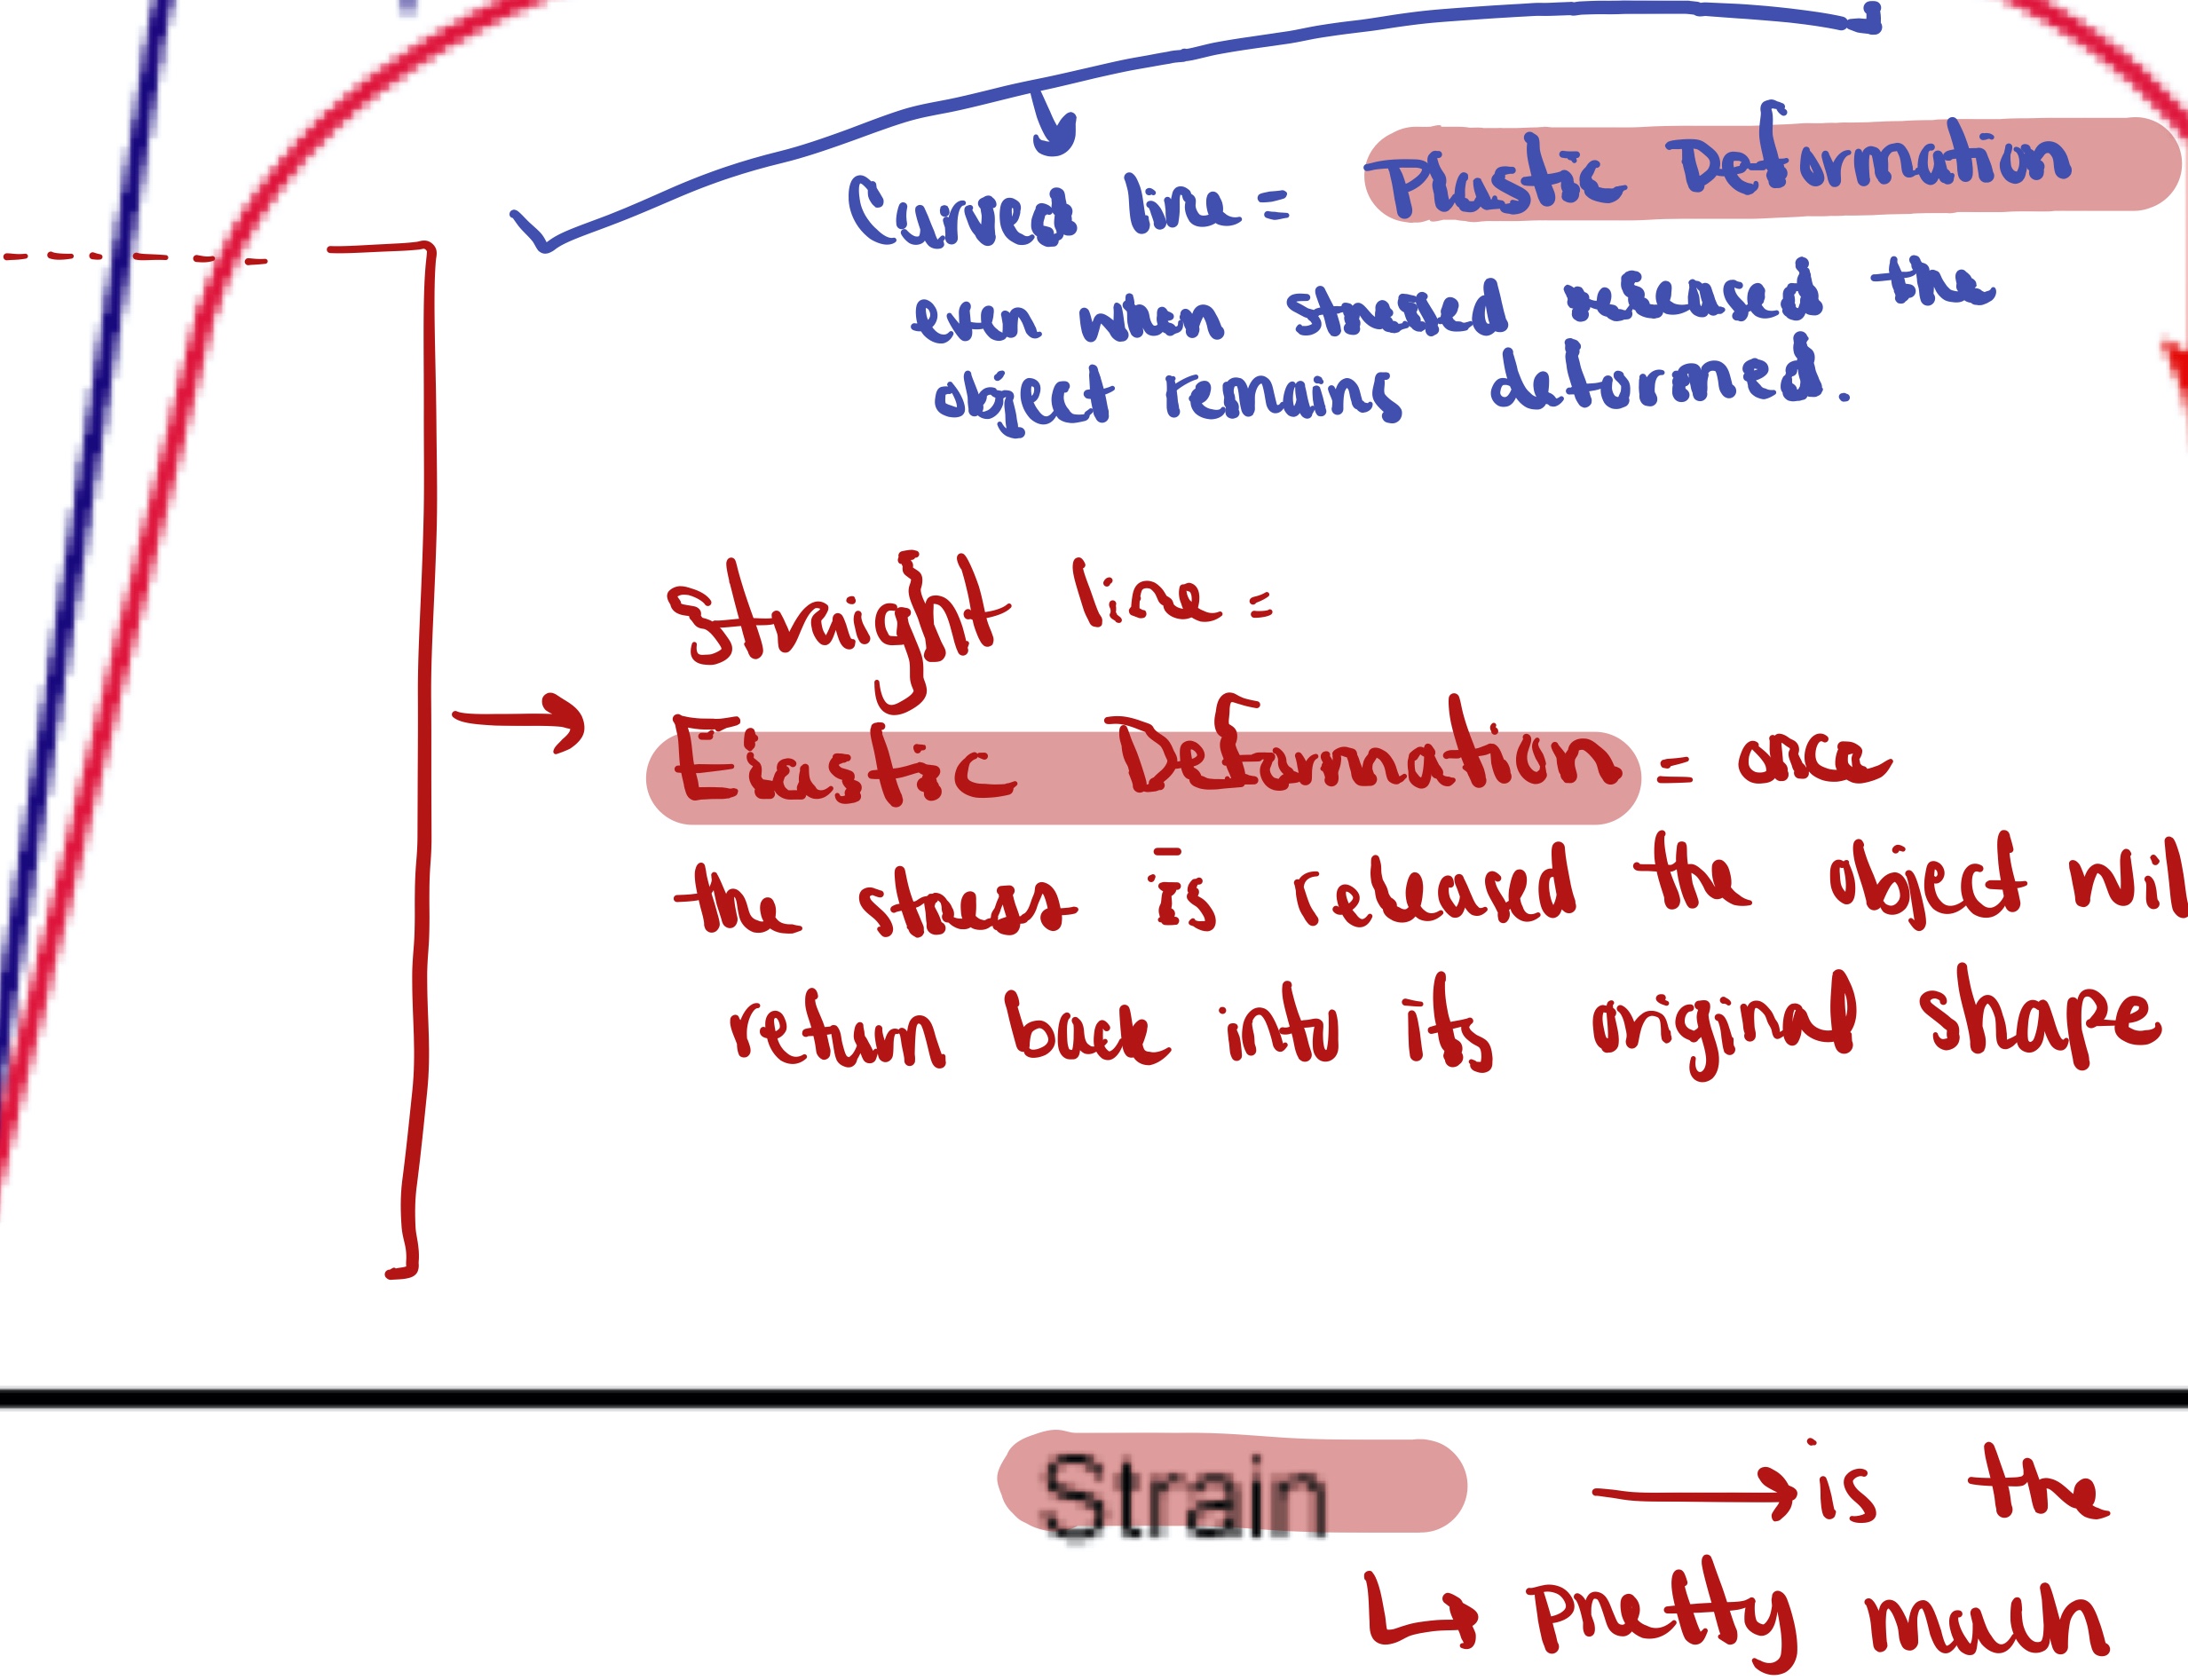 Curved line = Plastic Deformation
even when stressed released the
object remains deformed.
Straight line =
Elastic Deformation = once
the stress is released the object will
return back into its original shape
Strain → is the
↳ pretty much